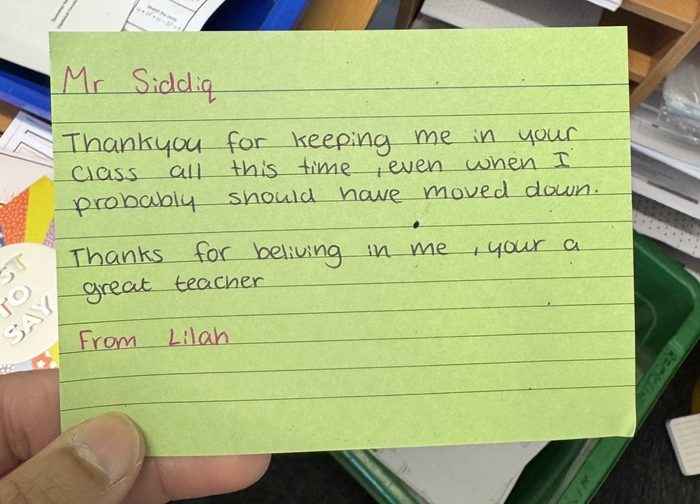 Mr Siddiq
Thankyou for keeping me in your
class all this time , even when I
probably should have moved down.
Thanks for beliving in me , your a
great teacher
From Lilah
TO
SAY